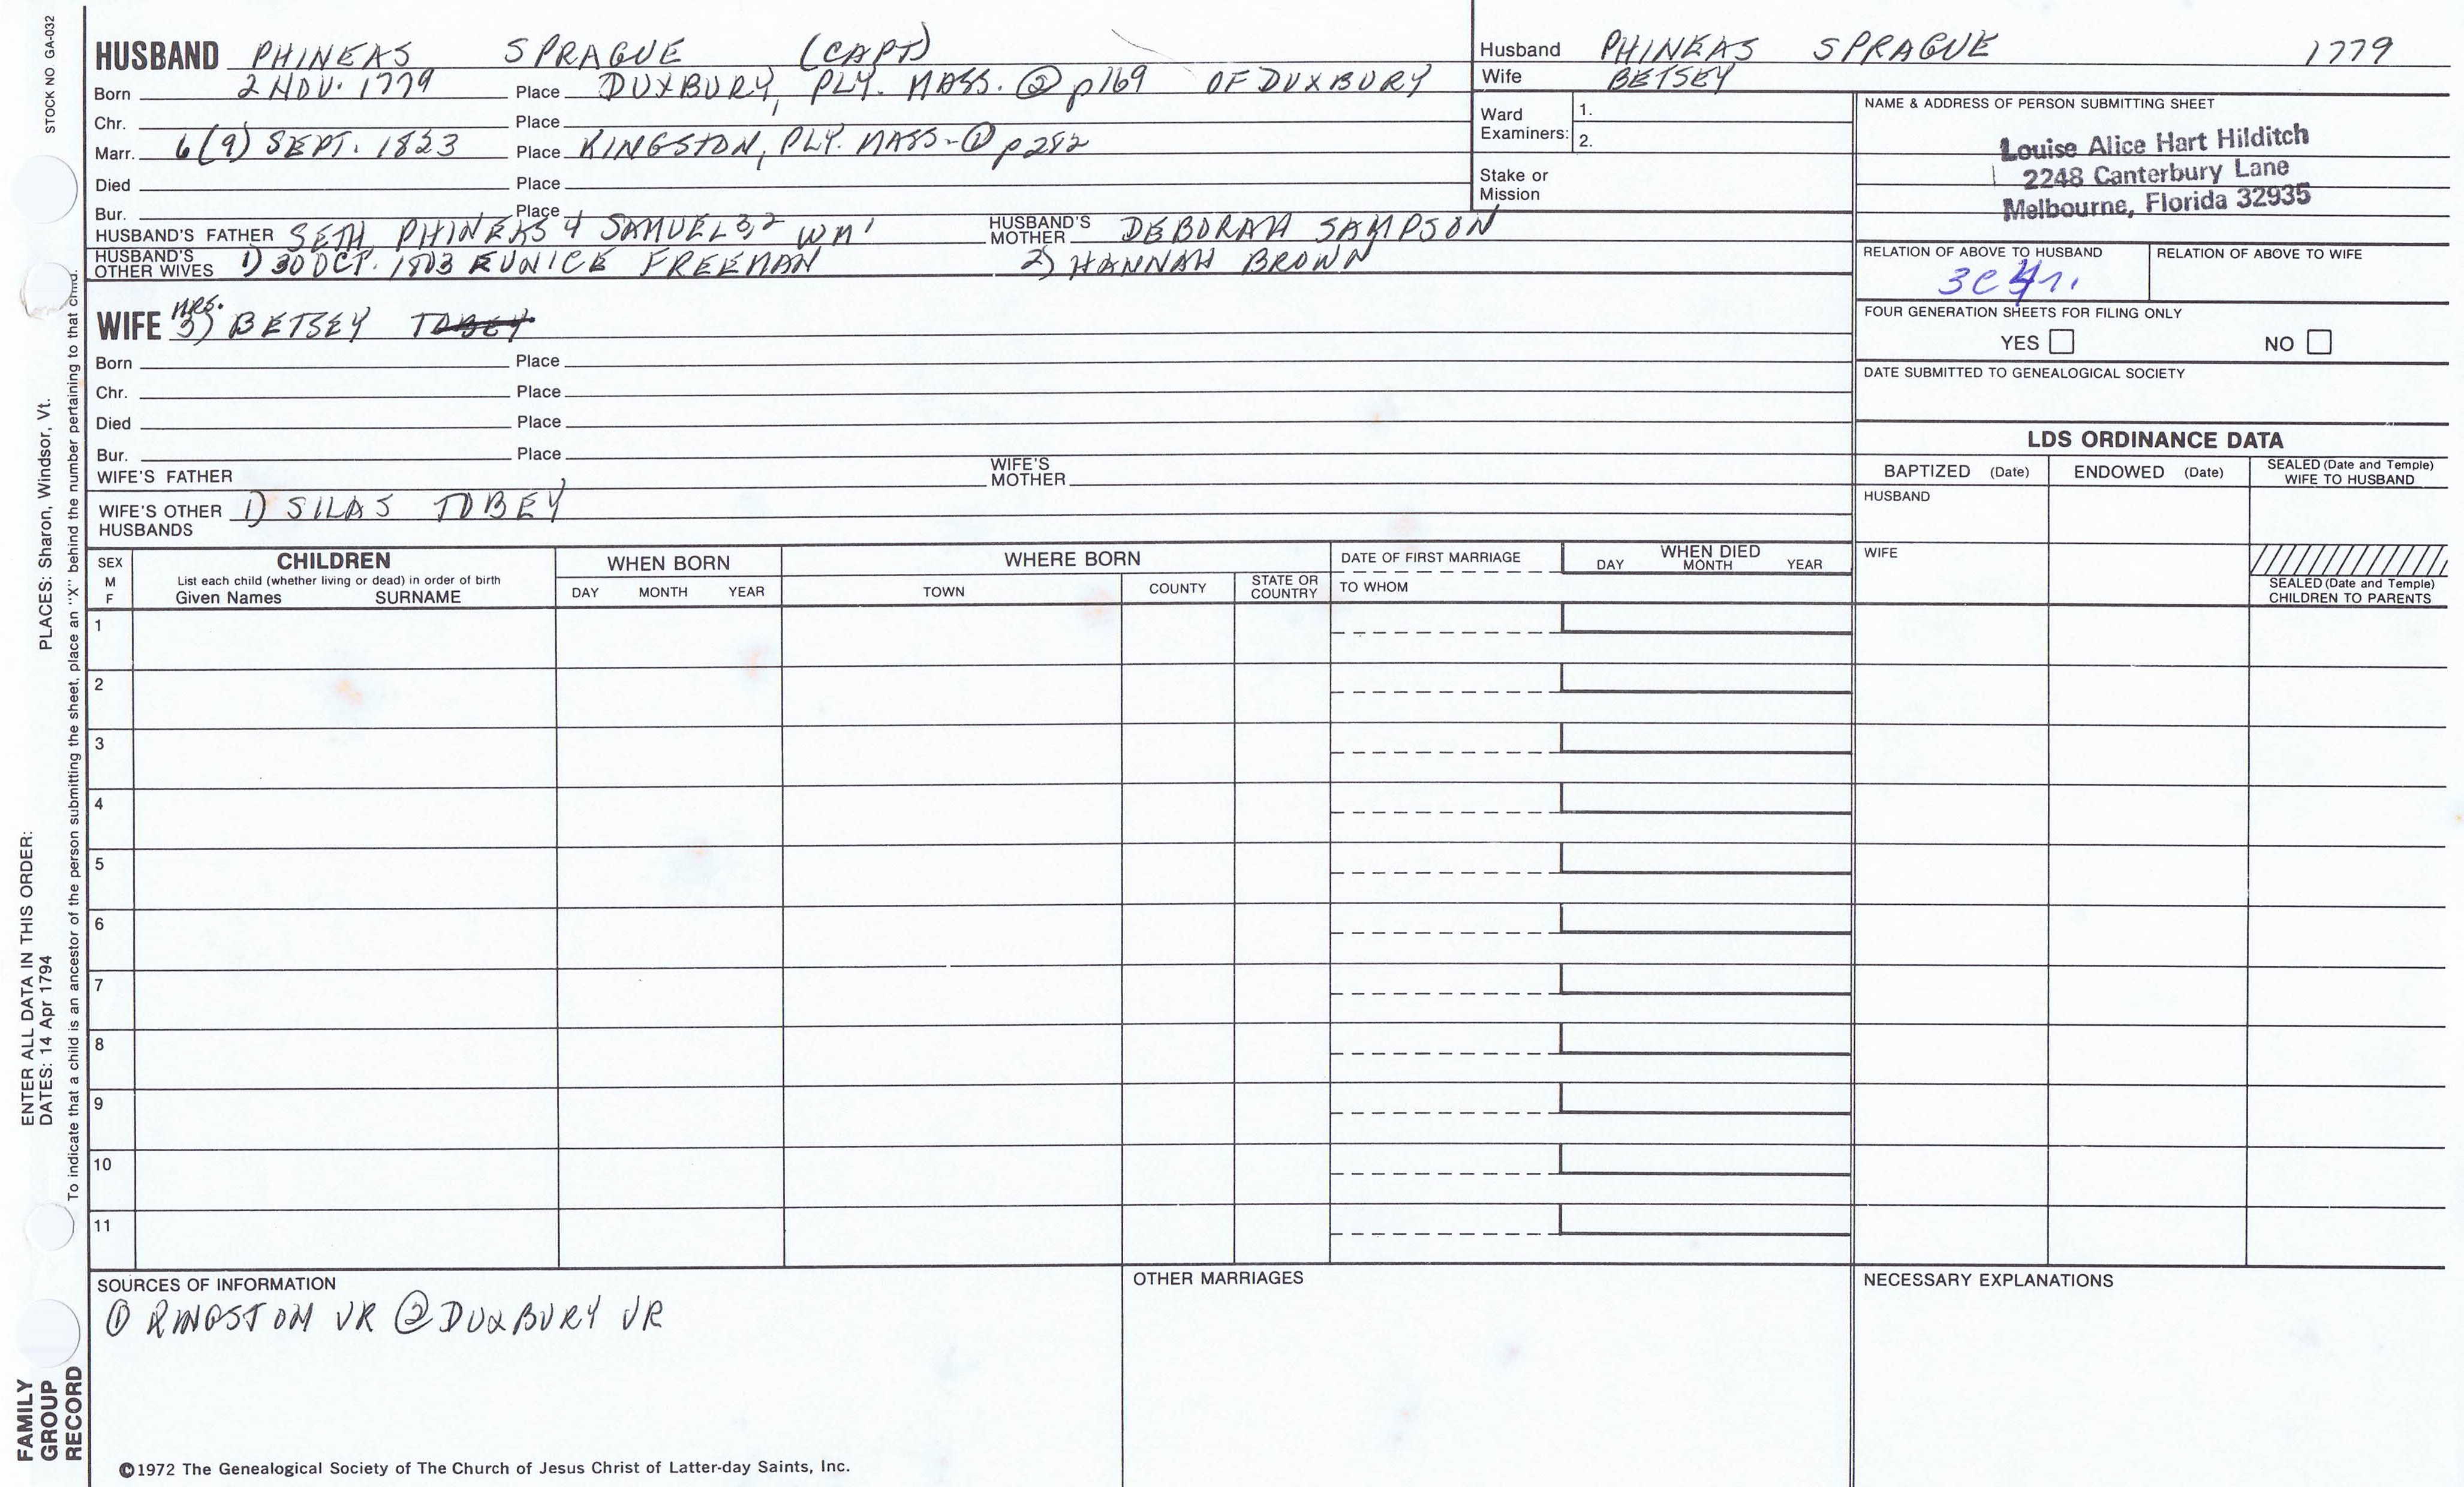 STOCK NO GA-032
PLACES: Sharon, Windsor, Vt.
ENTER ALL DATA IN THIS ORDER:
DATES: 14 Apr 1794
To indicate that a child is an ancestor of the person submitting the sheet, place an "X" behind the number pertaining to that child.
FAMILY
GROUP
RECORD
HUSBAND PHINEAS SPRAGUE (CAPT)
Born 2 NOV. 1779 Place DUXBURY, PLY. MASS. ② p169 OF DUXBURY
Chr. Place
Marr. 6(9) SEPT. 1833 Place KINGSTON, PLY. MASS-① p282
Died Place
Bur. Place
HUSBAND'S FATHER SETH, PHINEAS 4 SAMUEL 3,2 WM 1 HUSBAND'S MOTHER DEBORAH SAMPSON
HUSBAND'S OTHER WIVES 1) 30 OCT. 1803 EUNICE FREEMAN 2) HANNAH BROWN
WIFE MRS. 3) BETSEY TOBEY
Born Place
Chr. Place
Died Place
Bur. Place
WIFE'S FATHER WIFE'S MOTHER
WIFE'S OTHER HUSBANDS 1) SILAS TOBEY
Husband PHINEAS SPRAGUE 1779
Wife BETSEY
Ward Examiners: 1.
2.
Stake or Mission
NAME & ADDRESS OF PERSON SUBMITTING SHEET
Louise Alice Hart Hilditch
2248 Canterbury Lane
Melbourne, Florida 32935
RELATION OF ABOVE TO HUSBAND RELATION OF ABOVE TO WIFE
3C4r.
FOUR GENERATION SHEETS FOR FILING ONLY
YES NO
DATE SUBMITTED TO GENEALOGICAL SOCIETY
LDS ORDINANCE DATA
BAPTIZED (Date) ENDOWED (Date) SEALED (Date and Temple) WIFE TO HUSBAND
HUSBAND
WIFE
SEALED (Date and Temple) CHILDREN TO PARENTS
SEX M F CHILDREN WHEN BORN WHERE BORN DATE OF FIRST MARRIAGE WHEN DIED
List each child (whether living or dead) in order of birth
Given Names SURNAME DAY MONTH YEAR TOWN COUNTY STATE OR COUNTRY TO WHOM DAY MONTH YEAR
1
2
3
4
5
6
7
8
9
10
11
SOURCES OF INFORMATION OTHER MARRIAGES NECESSARY EXPLANATIONS
① KINGSTON VR ② DUXBURY VR
©1972 The Genealogical Society of The Church of Jesus Christ of Latter-day Saints, Inc.